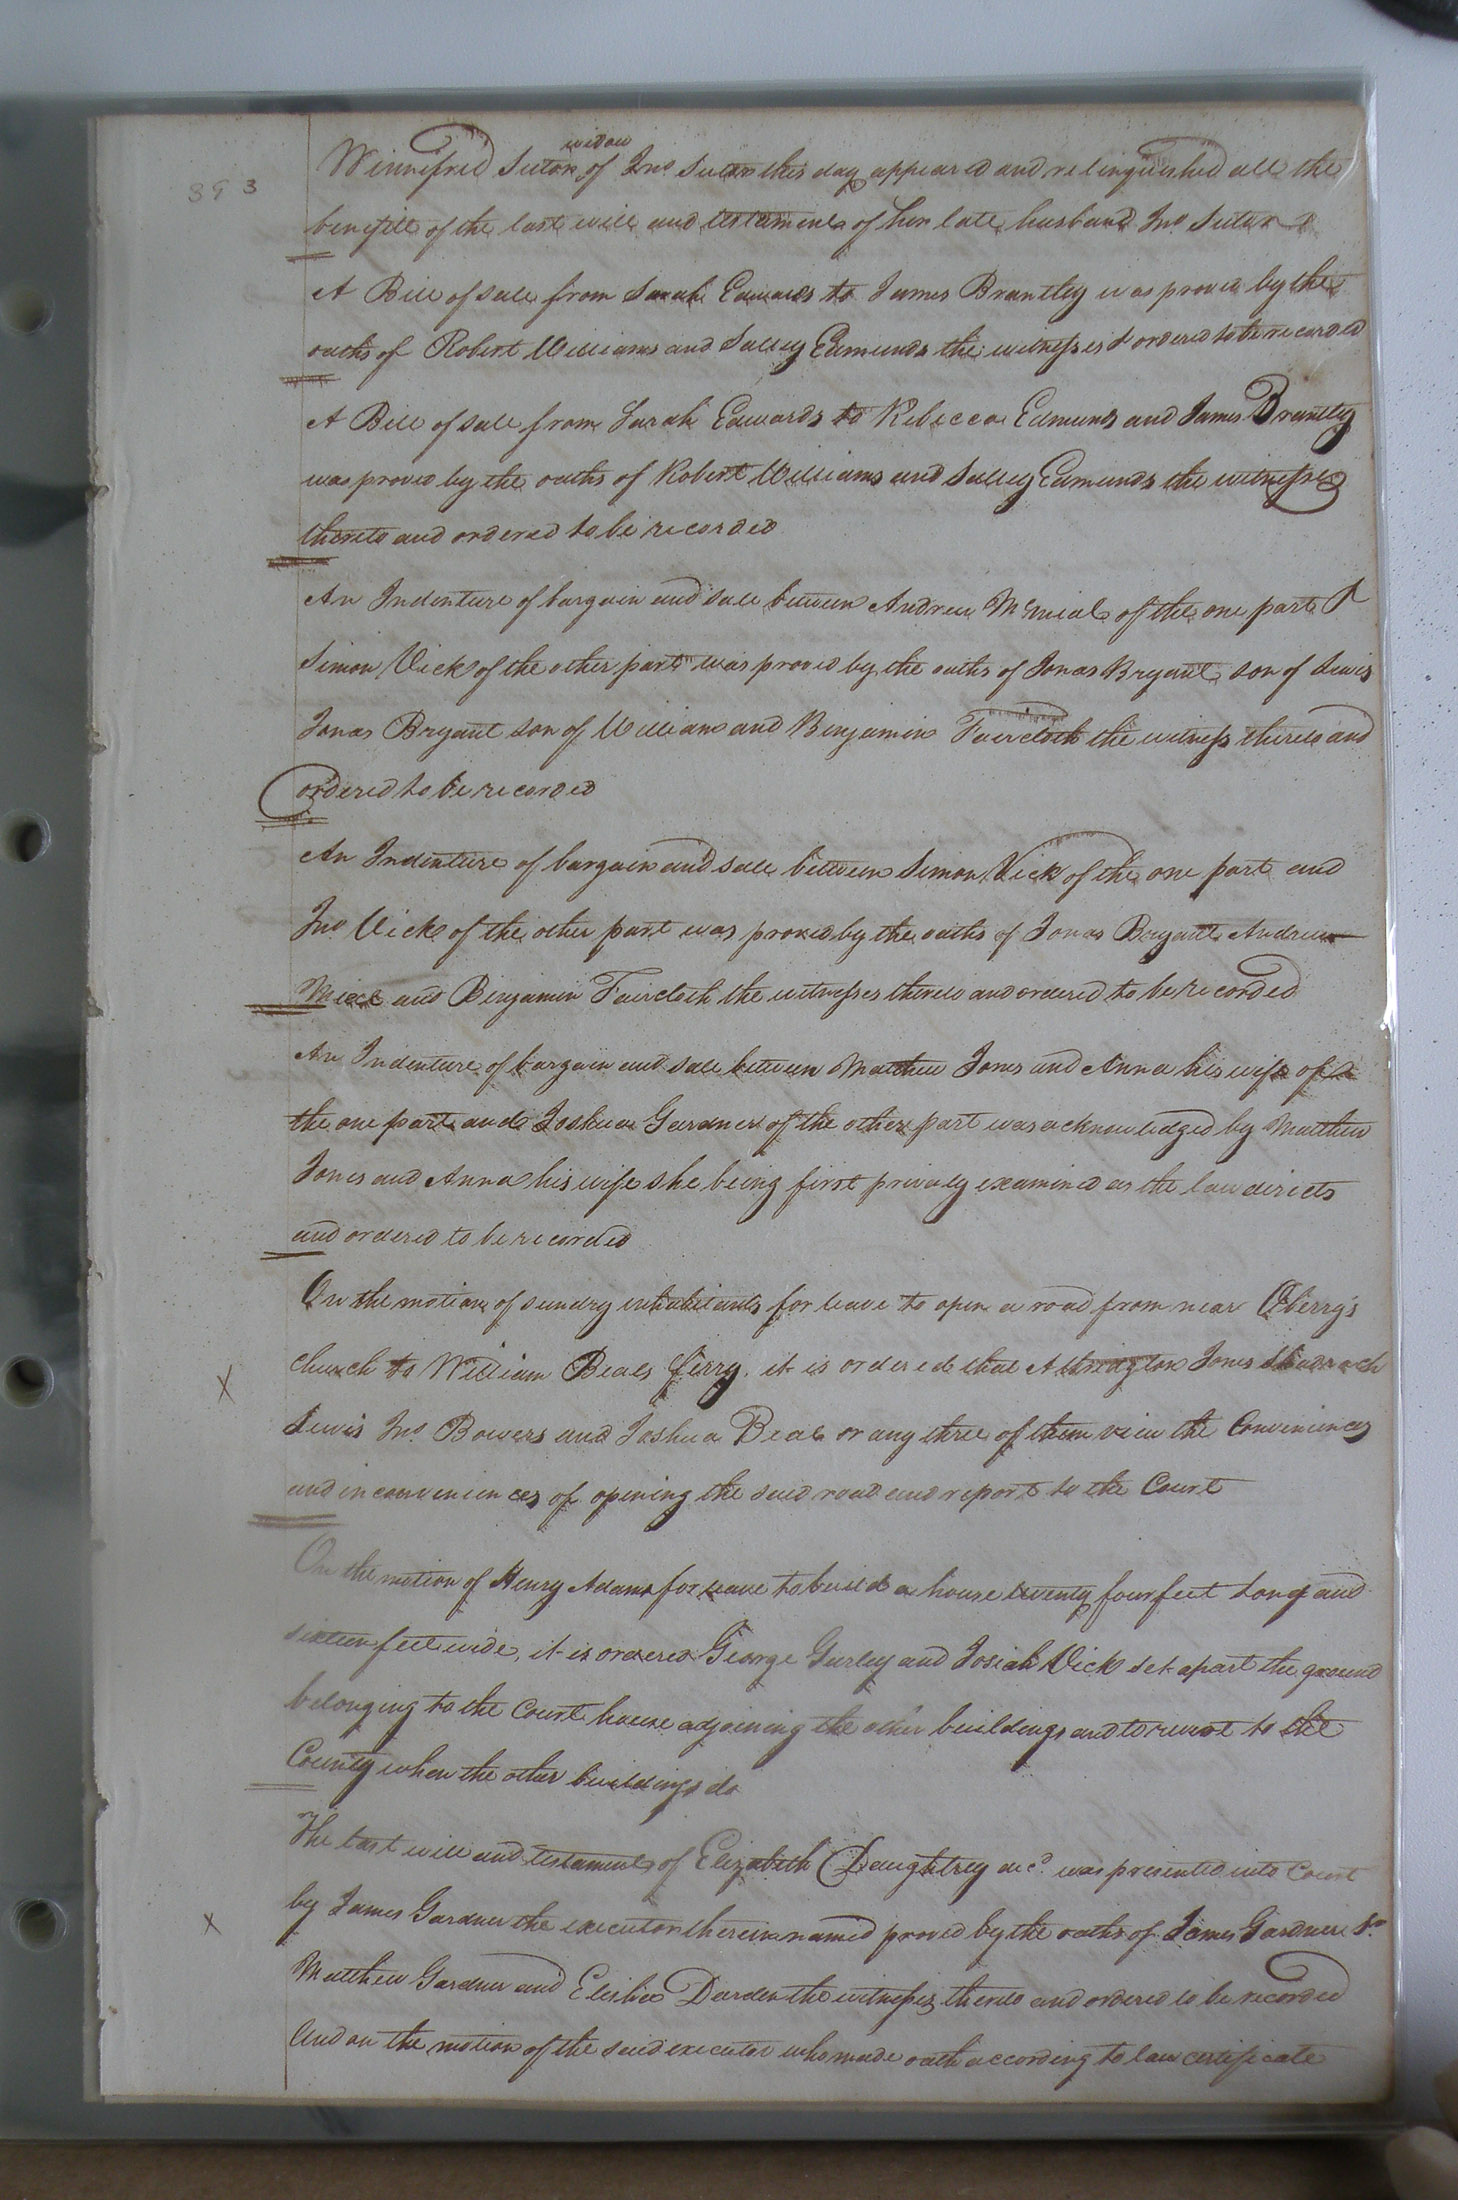 393
widow
Winnifred Suter of Jno. Suter this day appeared and relinquished all the
benefitt of the last will and testament of her late husband Jno. Suter
A Bill of sale from Sarah Edwards to James Brantley was proved by the
oaths of Robert Williams and Salley Edmunds the witnesses & ordered to be recorded
A Bill of sale from Sarah Edwards to Rebecca Edmunds and James Brantley
was proved by the oaths of Robert Williams and Salley Edmunds the witnesses
thereto and ordered to be recorded
An Indenture of bargain and sale between Andrew of the one part &
Simon Vick of the other part was proved by the oaths of Jonas Bryant son of Lewis
Jonas Bryant son of William and Benjamin Faircloth the witness thereto and
ordered to be recorded
An Indenture of bargain and sale between Simon Vick of the one part and
Jno. Vick of the other part was proved by the oaths of Jonas Bryant Andrew
and Benjamin Faircloth the witnesses thereto and ordered to be recorded
An Indenture of bargain and sale between Matthew Jones and Anna his wife of
the one part and Joshua Gardner of the other part was acknowledged by Matthew
Jones and Anna his wife she being first privaly examined as the law directs
and ordered to be recorded
On the motion of sundry inhabitants for leave to open a road from near Oberry's
church to William Beals ferry, it is ordered that Albridgton Jones Shadrach
Lewis Jno. Bowers and Joshua Beal or any three of them view the Conveniences
and inconveniences of opening the said road and report to the Court
On the motion of Henry Adams for leave to build a house twenty four feet long and
sixteen feet wide, it is ordered George Gurley and Josiah Vick set apart the ground
belonging to the Court house adjoining the other buildings and to revert to the
County when the other buildings do
The last will and testament of Elizabeth Daughtrey decd. was presented into Court
by James Gardner the executor therein named proved by the oaths of James Gardner Sr.
Matthew Gardner and Elisha Darden the witnesses thereto and ordered to be recorded
And on the motion of the said executor who made oath according to law certificate